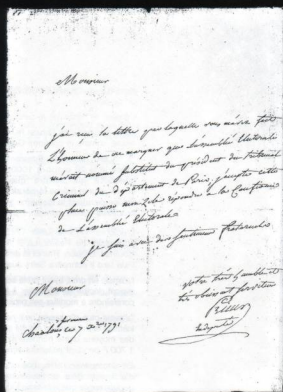 Monsieur
j'ai reçu la lettre par laquelle vous m'avez fait
L'honneur de me marquer que L'assemblée Electorale
m'avait nommé substitut du président du tribunal
Criminel du département de Paris, j'accepte cette
place puisse mon zele répondre a la Confiance
de L'assemblée Electorale
je suis avec des sentimens fraternels
Monsieur
votre très humble et
très obéissant serviteur
député
chaalons ce 7 1791